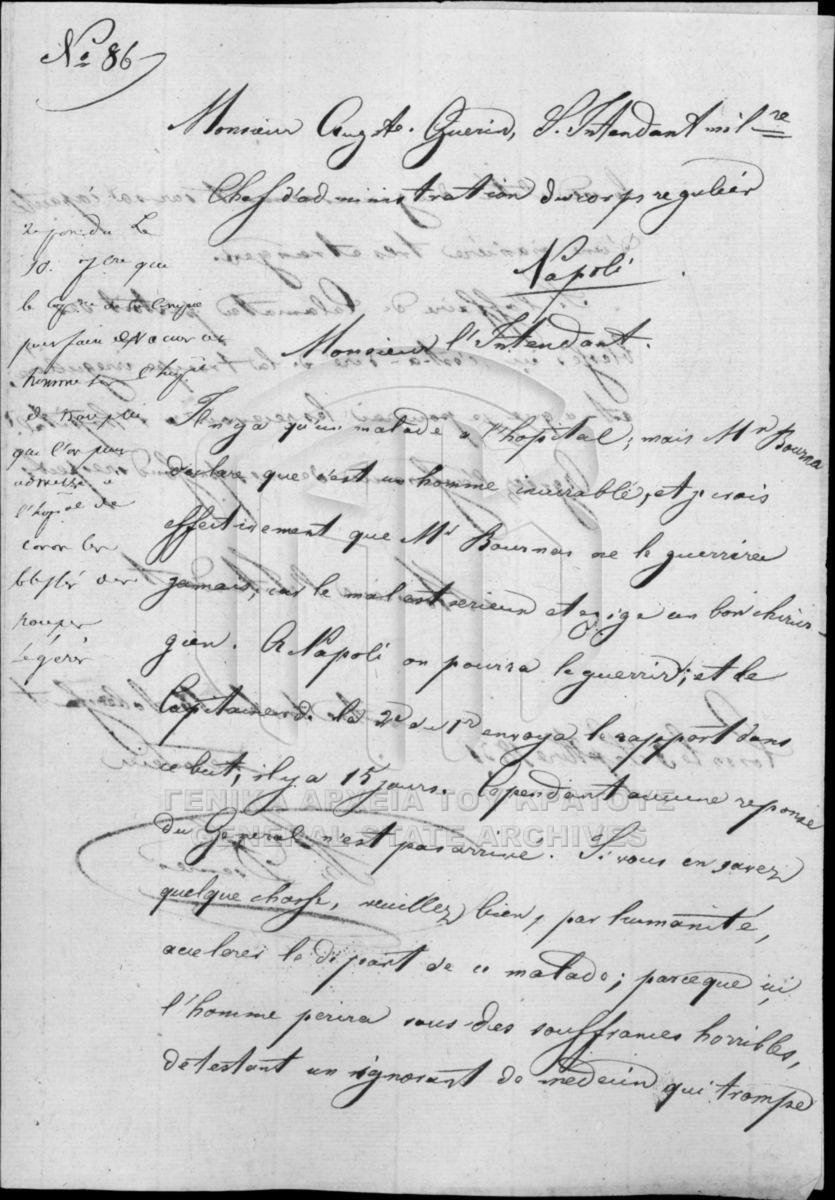 No 86
Monsieur Auguste. Guerin, S. Intendant milre
Chef d'administration du corps regulier
Napoli
Monsieur l'Intendant.
Il n'y a qu'un malade à l'hopital; mais Mr Bournas
declare que c'est un homme incurable, et je crois
effectivement que Mr Bournas ne le guerrira
jamais, car le mal est serieux et exige un bon chirur-
gien. A Napoli on pourra le guerrir; et le
Capitaine de la 2e du 1er envoya le rapport dans
ce but, il y a 15 jours. Cependant aucune reponse
du General n'est pas arrivé. Si vous en savez
quelque chosse, veuillez bien, par humanité,
accelerer le depart de ce malade; parceque ici,
l'homme perira sous des souffrances horribles,
détestant un ignorant de médecin qui trompe
repondu le
10. que
le
homme
de
que l'on
adresse a
l'hopal de
Coron les
blessés des
troupes
légéres
ΓΕΝΙΚΑ ΑΡΧΕΙΑ ΤΟΥ ΚΡΑΤΟΥΣ
GENERAL STATE ARCHIVES